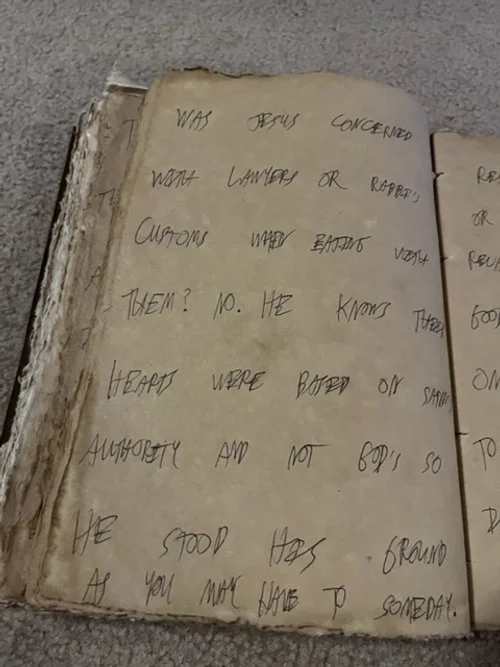 WAS JESUS CONCERNED
WITH LAWYERS OR RABBI'S
CUSTOMS WHEN EATING WITH
THEM? NO. HE KNOWS THEIR
HEARTS WERE BASED ON
AUTHORITY AND NOT GOD'S SO
HE STOOD HIS GROUND
AS YOU MAY HAVE TO SOMEDAY.
OR
ON
TO